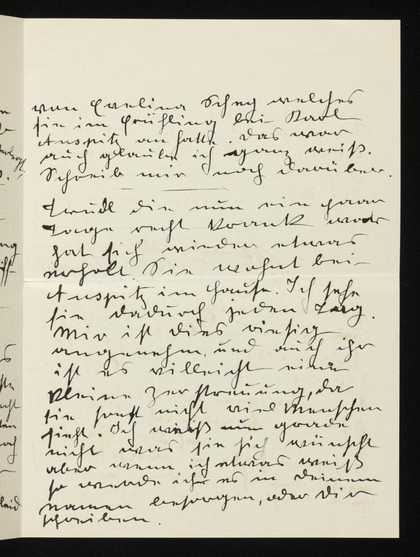 von Evelina Scheg welches
sie im Frühling bei Karl
Auspitz an hatte. das war
auch glaube ich ganz weiß.
Schreib mir noch darüber.
Trudl die nun ein paar
Tage recht krank war
hat sich wieder etwas
erholt. Sie wohnt bei
Auspitz im Hause. Ich sehe
sie dadurch jeden Tag.
Mir ist dies riesig
angenehm, und auch ihr
ist es villeicht eine
kleine Zerstreuung, da
sie sonst nicht viel Menschen
sieht. Ich weiß nun grade
nicht was sie sich wünscht
aber wenn ich etwas weiß
so werde ich es in deinem
namen besorgen, oder dir
schreiben.